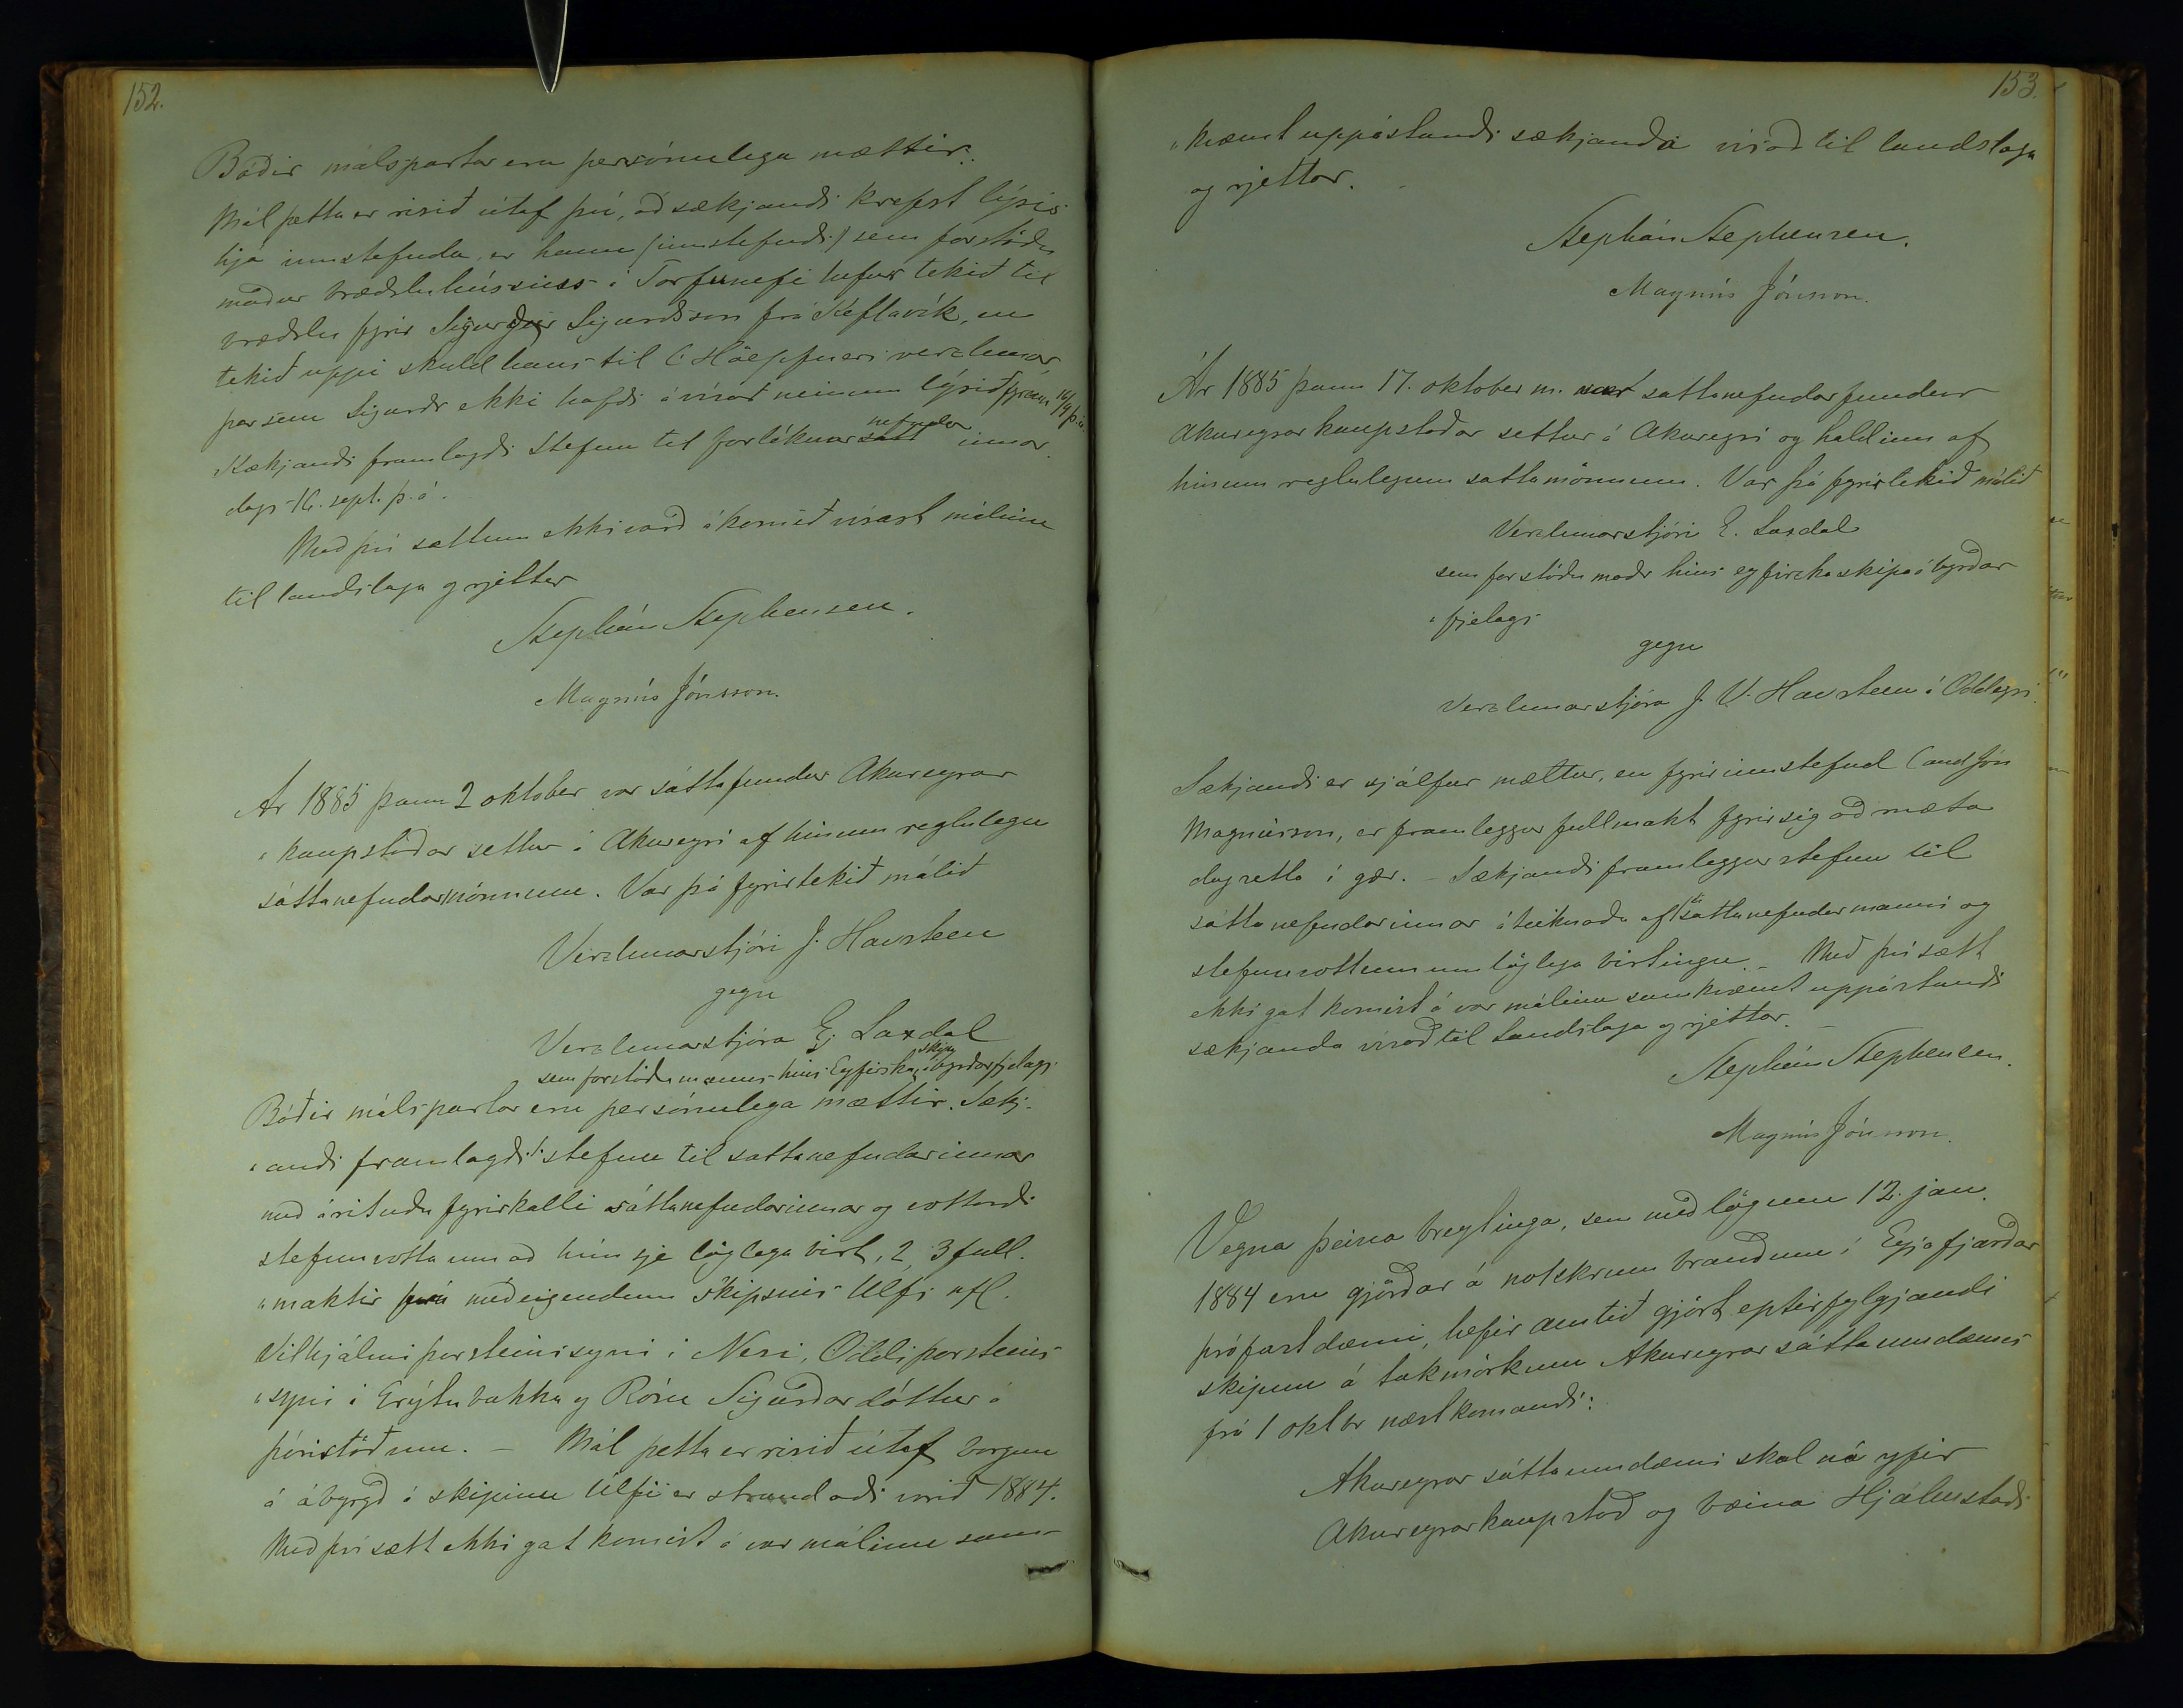 152.
Báðir málspartar eru persónulega mættir.
Mál þetta er risið útaf því, að sækjandi krefst lýsis
hjá innstefnda, er hann (innstefndi) sem forstöðu
maður bræðsluhússins á Torfunefi hefur tekið til
bræðslu fyrir Sigurð Sigurðsson frá Keflavík, en
tekið uppí skuld hans til C. Höepfners verzlunar
þar sem Sigurðr ekki hafði ávísað neinum lýsið fyr en 16/9 þ.á.
Sækjandi framlagði stefnu til forlíkunar sátt nefndar innar
dags 16. sept. þ.á.
Með því sættum ekki varð ákomið vísast málinu
til landslaga og rjettar
Stephán Stephensen.
Magnús Jónsson.
Ár 1885 þann 2 oktober var sáttafundur Akureyrar
kaupstaðar settur á Akureyri af hinum reglulegu
sáttanefndarmönnum. Var þá fyrirtekið málið
Verzlunarstjóri J. Havsteen
gegn
Verzlunarstjóra E. Laxdal
sem forstöðumanns hins Eyfirzka skipa ábyrgðarfjelags
Báðir málspartar eru persónulega mættir. Sækj-
andi framlagði 1. stefnu til sáttanefndarinnar
með árituðu fyrirkalli sáttanefndarinnar og vottorði
stefnuvotta um að hún sje löglega birt, 2, 3 full-
maktir frá meðeigendum skipsins Ulfs nfl.
Vilhjálmi þorsteinssyni í Nesi, Oddi þorsteins-
syni í Grýtubakka og Rósu Sigurðardóttur á
þóristöðum. – Mál þetta er risið útaf borgun
á ábyrgð á skipinu Úlfi er strandaði vorið 1884.
Með því sætt ekki gat komist á var málinu sam-
153.
kvæmt uppástandi sækjanda vísað til landslaga
og rjettar.
Stephán Stephensen.
Magnús Jónsson.
Ár 1885 þann 17. oktober m. var sáttanefndarfundur
Akureyrar kaupstaðar settur á Akureyri og haldinn af
hinum reglulegum sáttamönnum. Var þá fyrirtekið málið
Verzlunarstjóri E. Laxdal
sem forstöðu maðr hins eyfirzka skipaábyrgðar
fjelags
gegn
verzlunarstjóra J. V. Havsteen á Oddeyri.
Sækjandi er sjálfur mættur, en fyrir innstefnd Cand Jón
Magnússon, er framleggur fullmakt fyrir sig að mæta
dagsetta í gær. – Sækjandi framleggur stefnu til
sáttanefndarinnar áteiknaða af sáttanefndarmanni og
stefnuvottum um löglega birtingu. – Með því sætt
ekki gat komist á var málinu samkvæmt uppástandi
sækjanda vísað til landslaga og rjettar. –
Stephán Stephensen.
Magnús Jónsson.
Vegna þeirra breytinga, sem með lögum 12. jan.
1884 eru gjörðar á nokkrum brauðum í Eyjafjarðar
prófastdæmi, hefir amtið gjört eptirfylgjandi
skipun á takmörkum Akureyrar sáttaumdæmis
frá 1 oktbr næstkomandi:
Akureyrar sáttaumdæmi skal ná yfir
Akureyrarkaupstað og bæina Hjálmstaði